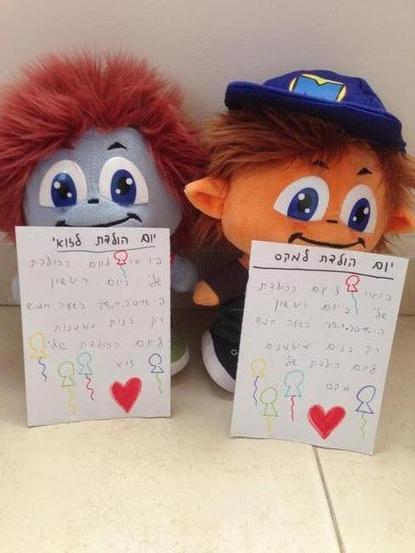 יום הולדת לזואי
בואו ליום ההולדת
שלי ביום ראשון
ה-25.1.2015 בשעה חמש
רק בנות מוזמנות
ליום ההולדת שלי
זואי
יום הולדת למקס
בואו ליום ההולדת
שלי ביום ראשון
ה-25.1.2015 בשעה חמש
רק בנים מוזמנים
ליום הולדת שלי
מקס